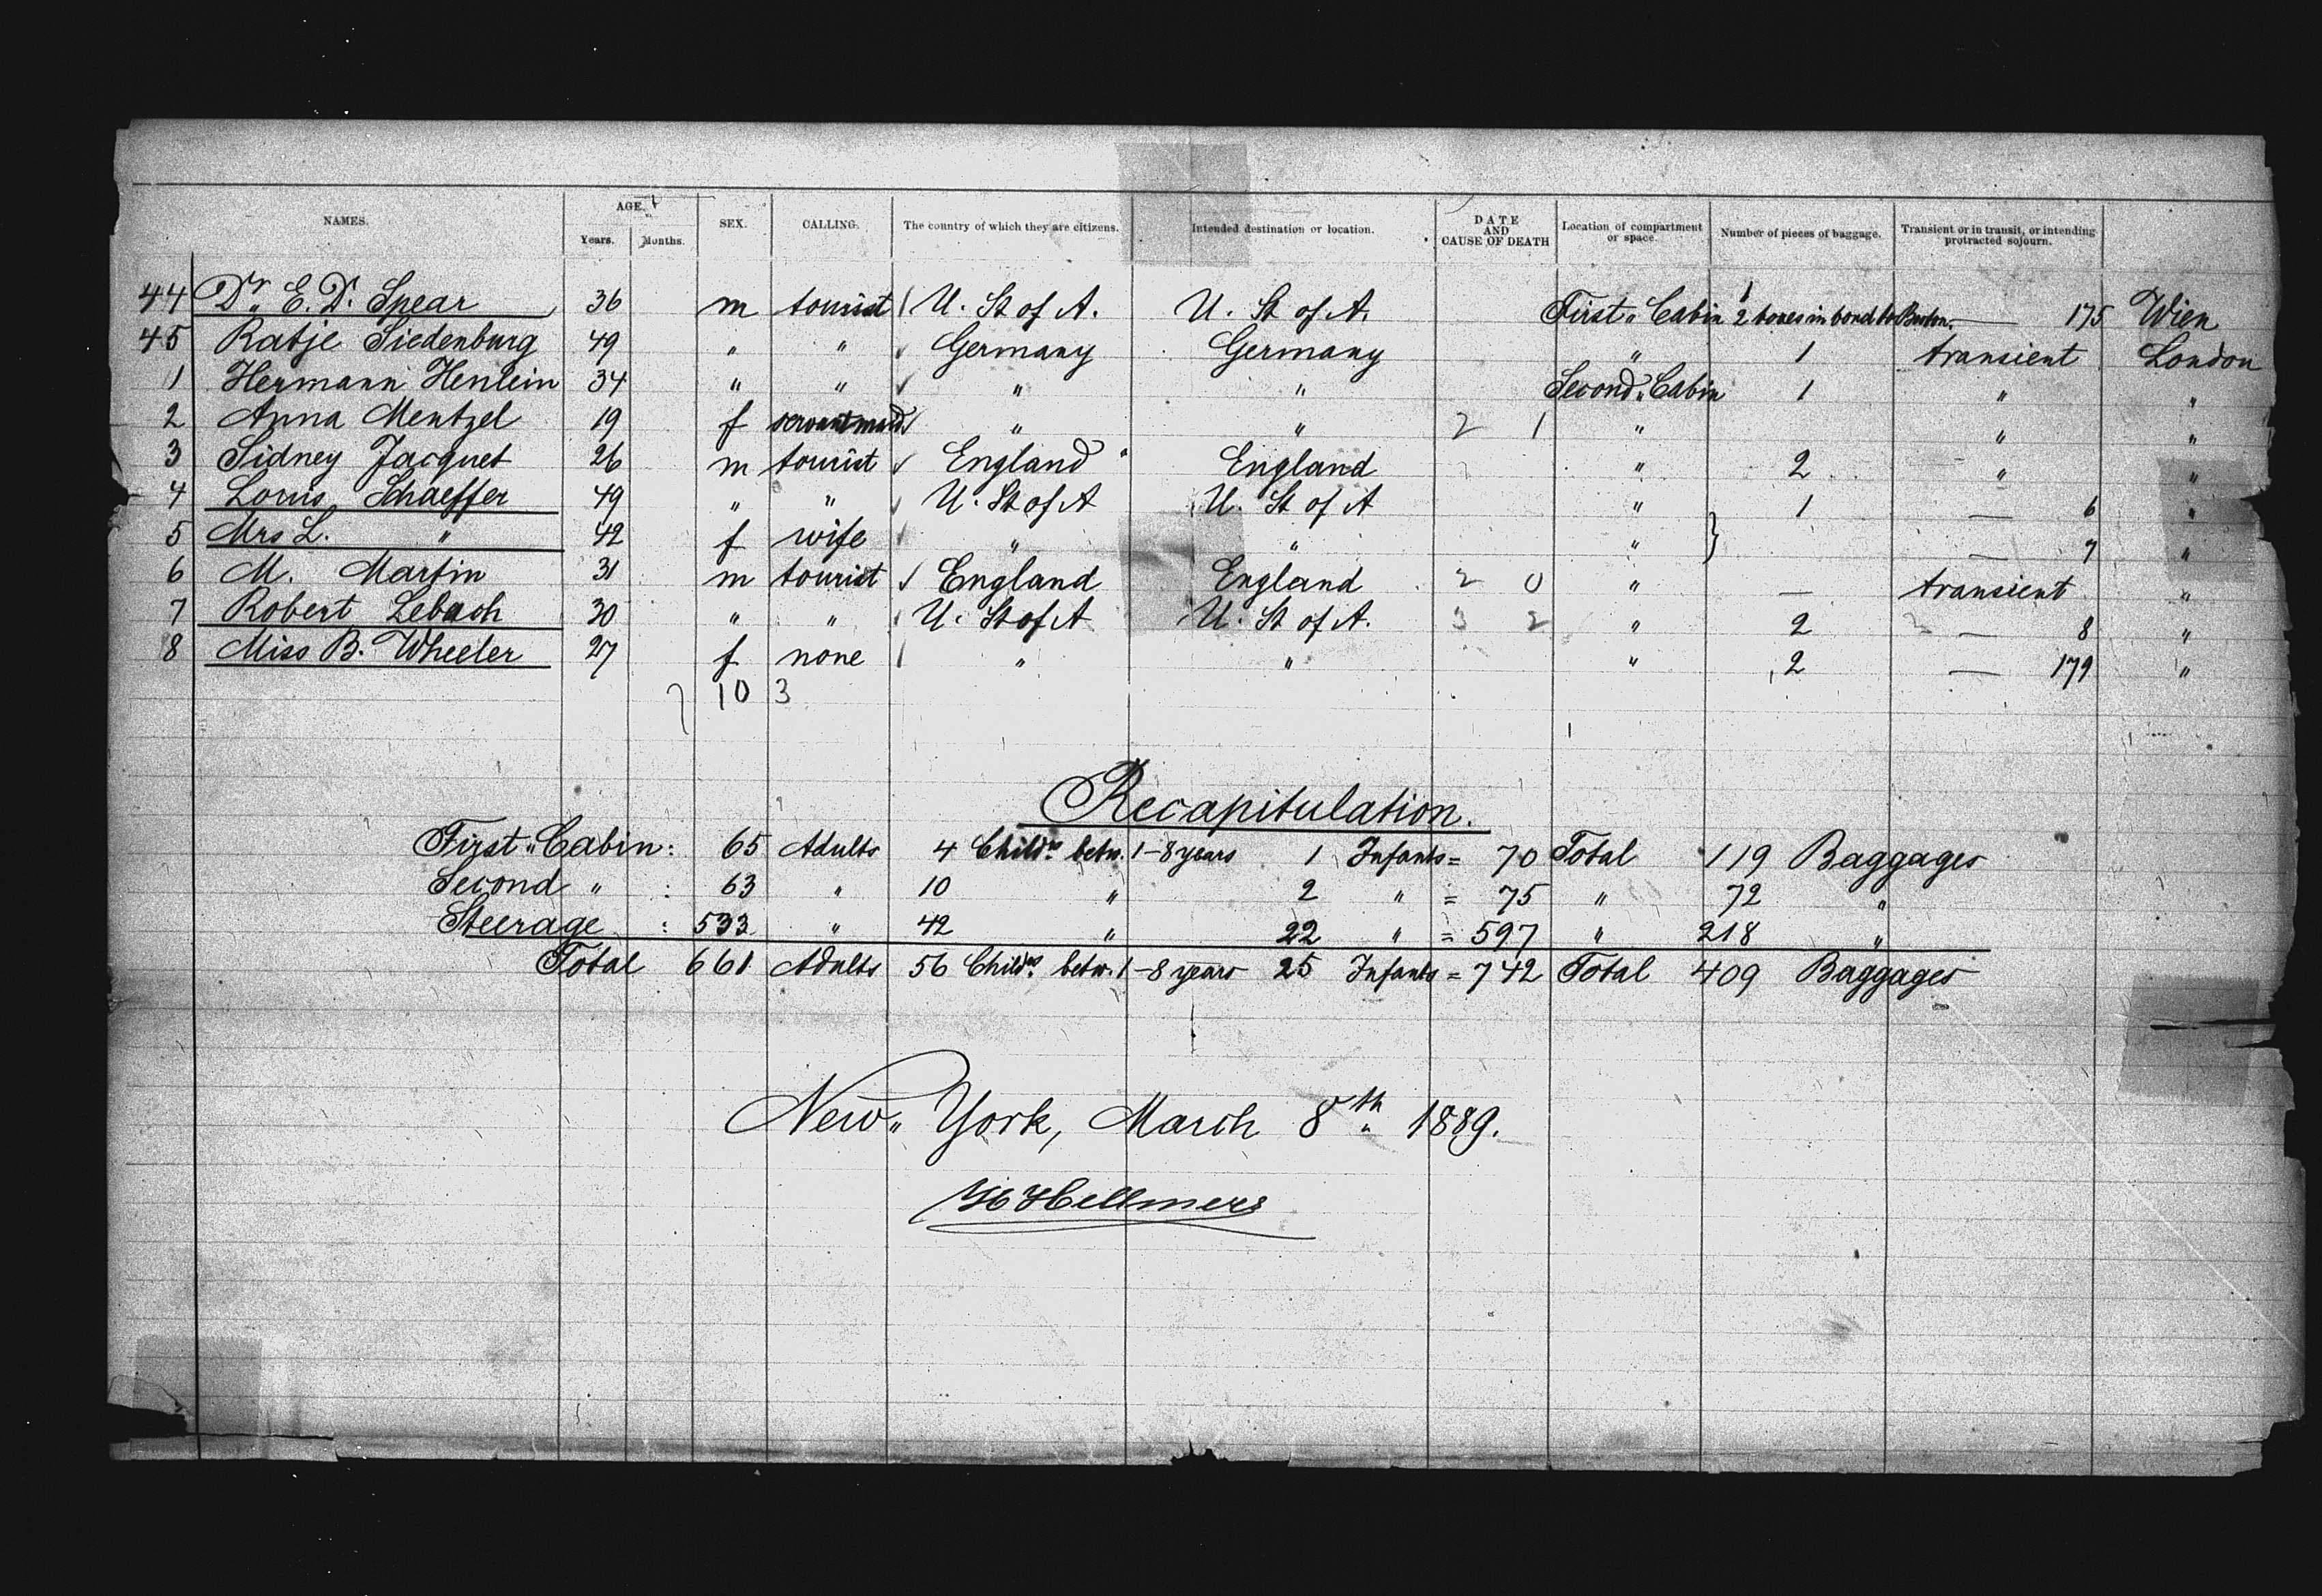 NAMES. AGE. Years. Months. SEX. CALLING. The country of which they are citizens. Intended destination or location. DATE AND CAUSE OF DEATH Location of compartment or space. Number of pieces of baggage. Transient or in transit, or intending protracted sojourn.
44 Dr. E. D. Spear 36 m tourist U. St of A. U. St of A. First " Cabin 2 boxes in bond to Boston. — 175 Wien
45 Ratje Siedenburg 49 " " Germany Germany " 1 transient London
1 Hermann Henlein 34 " " " " Second " Cabin 1 " "
2 Anna Mentzel 19 f servantmaid " " 2 1 " " "
3 Sidney Jacquet 26 m tourist England England " 2 " "
4 Louis Schaeffer 49 " " U. St of A U. St of A " 1 — 6 "
5 Mrs L. " 42 f wife " " " } — 7 "
6 M. Martin 31 m tourist England England 2 0 " — transient "
7 Robert Lebach 30 " " U. St of A U. St of A. 3 2 " 2 — 8 "
8 Miss B. Wheeler 27 f none " " " 2 — 179 "
10 3
Recapitulation.
First " Cabin : 65 Adults 4 Childrs. betw. 1-8 years 1 Infants = 70 Total 119 Baggages
Second " : 63 " 10 " 2 " = 75 " 72 "
Steerage : 533 " 42 " 22 " = 597 " 218 "
Total 661 Adults 56 Childrs. betw. 1-8 years 25 Infants = 742 Total 409 Baggages
New " York, March 8th 1889.
H Hellmers